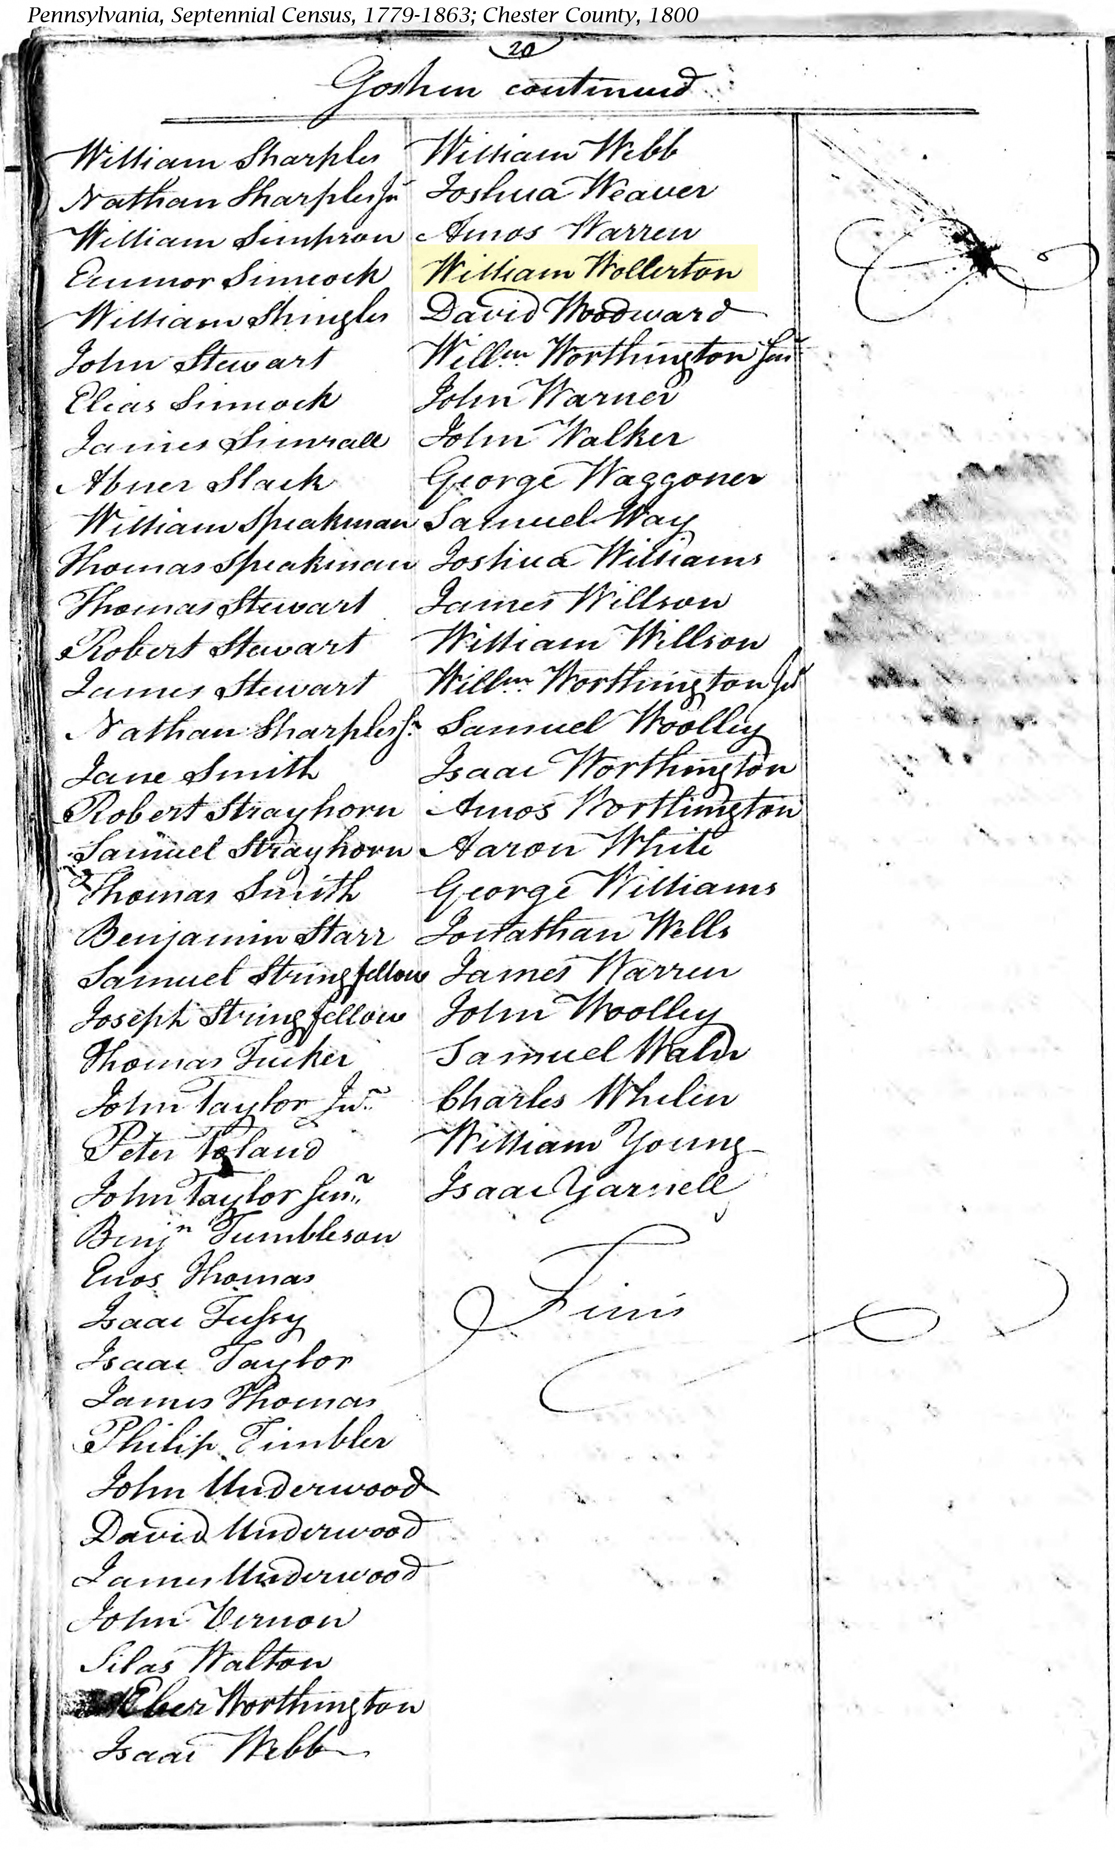 Pennsylvania, Septennial Census, 1779-1863; Chester County, 1800
20
Goshen continued
William Sharples
Nathan Sharples Jr
William Simpson
Emmor Simcock
William Shingler
John Stewart
Elias Simcock
James Simrall
Abner Slack
William Speakman
Thomas Speakman
Thomas Stewart
Robert Stewart
James Stewart
Nathan Sharples Sr
Jane Smith
Robert Strayhorn
Samuel Strayhorn
Thomas Smith
Benjamin Starr
Samuel Stringfellow
Joseph Stringfellow
Thomas Tucker
John Taylor Junr
Peter Toland
John Taylor Senr
Benjn Tumbleson
Enos Thomas
Isaac Tussy
Isaac Taylor
James Thomas
Philip Timbler
John Underwood
David Underwood
James Underwood
John Vernon
Silas Walton
Eber Worthington
Isaac Webb
William Webb
Joshua Weaver
Amos Warren
William Wollerton
David Woodward
Willm Worthington Senr
John Warner
John Walker
George Waggoner
Samuel Way
Joshua Williams
James Willson
William Willson
Willm Worthington Jur
Samuel Woolley
Isaac Worthington
Amos Worthington
Aaron White
George Williams
Jonathan Wells
James Warren
John Woolley
Samuel Waln
Charles Whelen
William Young
Isaac Yarnell
Finis